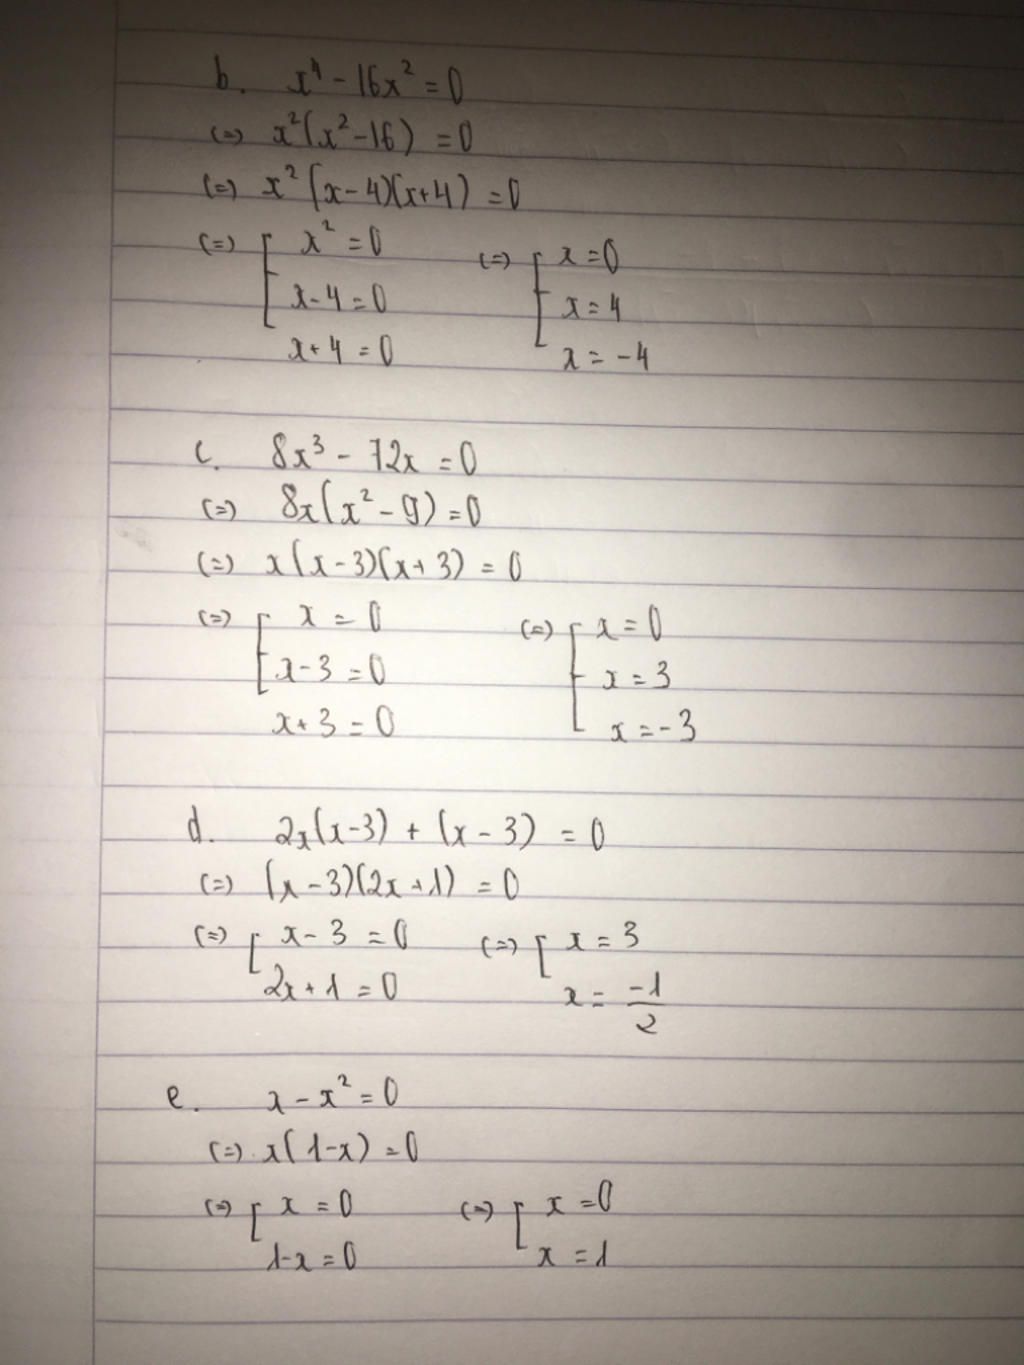 b. x⁴ - 16x² = 0
(=) x²(x² - 16) = 0
(=) x²(x - 4)(x + 4) = 0
(=) [ x² = 0 (=) [ x = 0
x - 4 = 0 x = 4
x + 4 = 0 x = -4
c. 8x³ - 72x = 0
(=) 8x(x² - 9) = 0
(=) x(x - 3)(x + 3) = 0
(=) [ x = 0 (=) [ x = 0
x - 3 = 0 x = 3
x + 3 = 0 x = -3
d. 2x(x - 3) + (x - 3) = 0
(=) (x - 3)(2x + 1) = 0
(=) [ x - 3 = 0 (=) [ x = 3
2x + 1 = 0 x = -1/2
e. x - x² = 0
(=) x(1 - x) = 0
(=) [ x = 0 (=) [ x = 0
1 - x = 0 x = 1